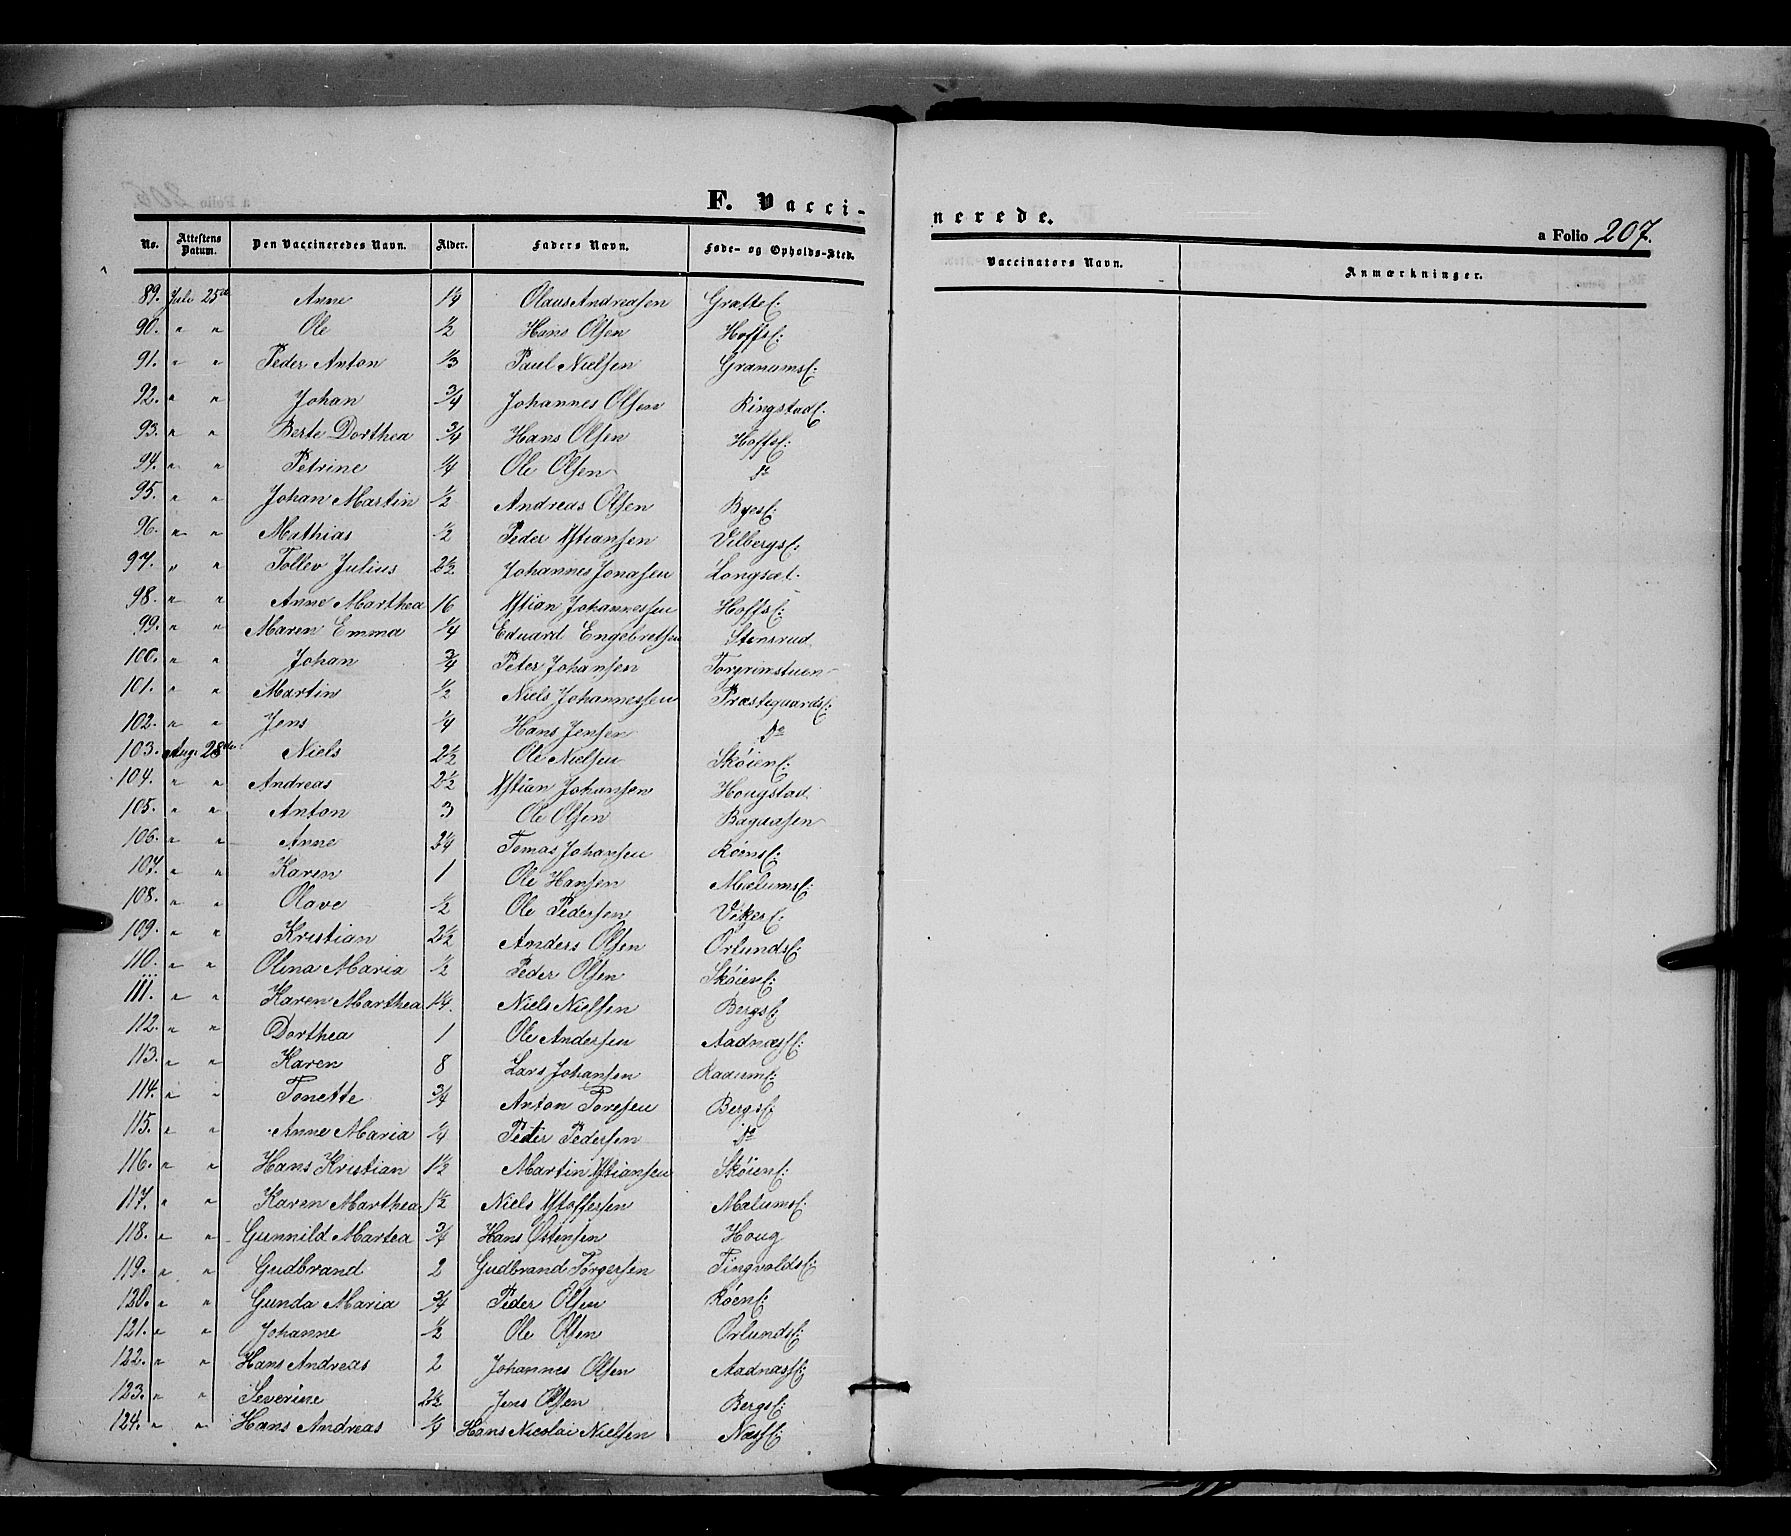 F. Vacci-
nerede.
a Folio 207.
No. Attestens Datum. Den Vaccineredes Navn. Alder. Faders Navn. Føde- og Opholds-Sted. Vaccinators Navn. Anmærkninger.
89. Juli 25de Anne 1/4 Olaus Andreasen Grætte
90. " " Ole 1/2 Hans Olsen Hoffs:
91. " " Peder Anton 1/3 Paul Nielsen Granums:
92. " " Johan 3/4 Johannes Olsen Ringstad
93. " " Berte Dorthea 3/4 Hans Olsen Hoffs:
94. " " Petrine 1/4 Ole Olsen do
95. " " Johan Martin 1/2 Andreas Olsen Byes:
96. " " Mathias 1/2 Peder Xstiansen Vilbergs:
97. " " Tollev Julius 2 1/2 Johannes Jonasen Longsæt
98. " " Anne Marthea 16 Xstian Johannessen Hoffs:
99. " " Maren Emma 1/4 Eduard Engebretsen Stensrud
100. " " Johan 3/4 Peter Johansen Torgrimstuen
101. " " Martin 1/2 Niels Johannessen Præstegaards:
102. " " Jens 1/4 Hans Jensen do
103. Aug. 28de Niels 2 1/2 Ole Nielsen Skøien:
104. " " Andreas 2 1/2 Xstian Johansen Hougstad
105. " " Anton 3 Ole Olsen Bagaasen
106. " " Anne Tomas Johansen Røens:
107. " " Karen 1 Ole Hansen Mælums:
108. " " Olave 1/2 Ole Pedersen Vikes:
109. " " Kristian 2 1/2 Anders Olsen Orlunds:
110. " " Olina Maria 1/2 Peder Olsen Skøien:
111. " " Karen Marthea 1 1/4 Niels Nielsen Bergs:
112. " " Dorthea 1 Ole Andersen Aadnæs:
113. " " Karen 8 Lars Johansen Radums:
114. " " Tonette 3/4 Anton Toresen Bergs:
115. " " Anne Maria 1/4 Peder Pedersen do
116. " " Hans Kristian 1 1/2 Martin Xstiansen Skøien:
117. " " Karen Marthea 1 1/2 Niels Xstoffersen Malums:
118. " " Gunnild Martea 3/4 Hans Østensen Houg
119. " " Gudbrand 2 Gudbrand Torgersen Tingvolds:
120. " " Gunda Maria 3/4 Peder Olsen Røen:
121. " " Johanne 1/2 Ole Olsen Orlunds:
122. " " Hans Andreas 2 Johannes Olsen Aadnæs:
123. " " Severine 2 1/2 Jens Olsen Bergs:
124. " " Hans Andreas 1/4 Hans Nicolai Nielsen Næs: